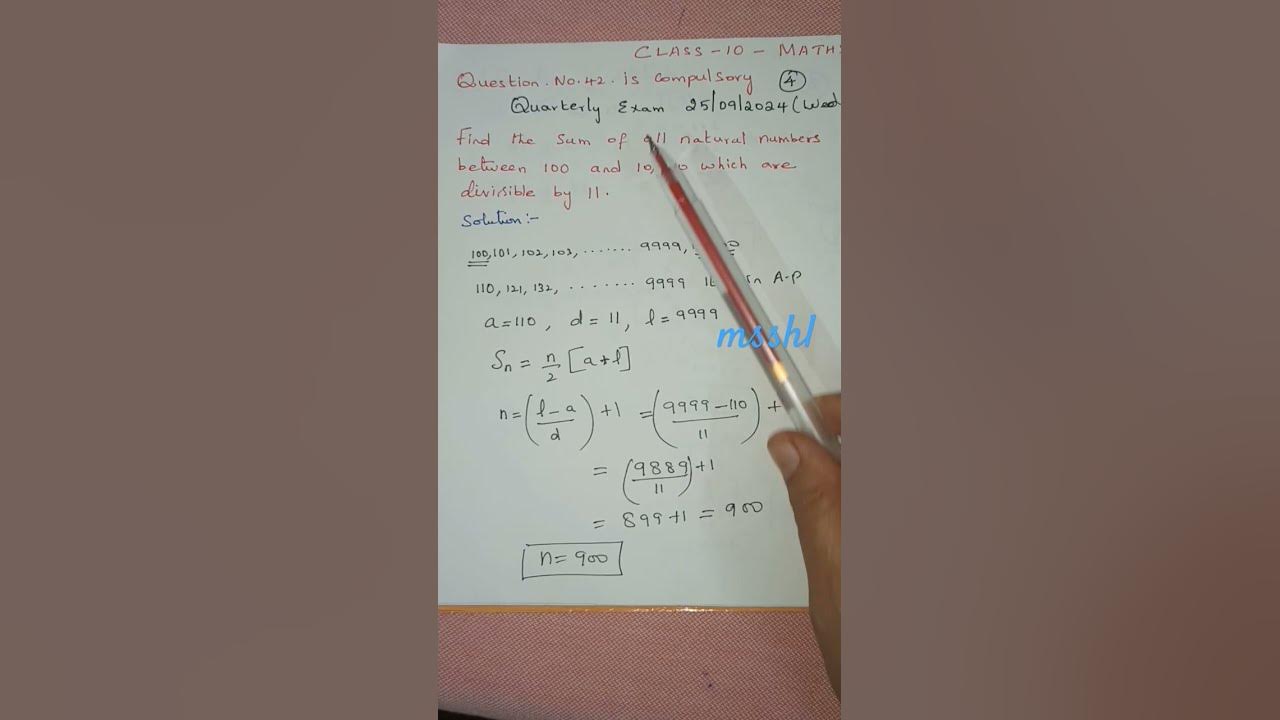 CLASS-10 - MATHS
Question. No. 42. is compulsory 4
Quarterly Exam 25/09/2024 (Wed
Find the sum of all natural numbers
between 100 and which are
divisible by 11.
Solution:-
100, 101, 102, 103, ....... 9999,
110, 121, 132, ........ 9999 A.P
a=110, d=11, l=9999
msshl
Sn = n/2 [a+l]
n = (l-a/d) +1 = (9999-110/11) +
= (9889/11)+1
= 899+1 = 900
n=900